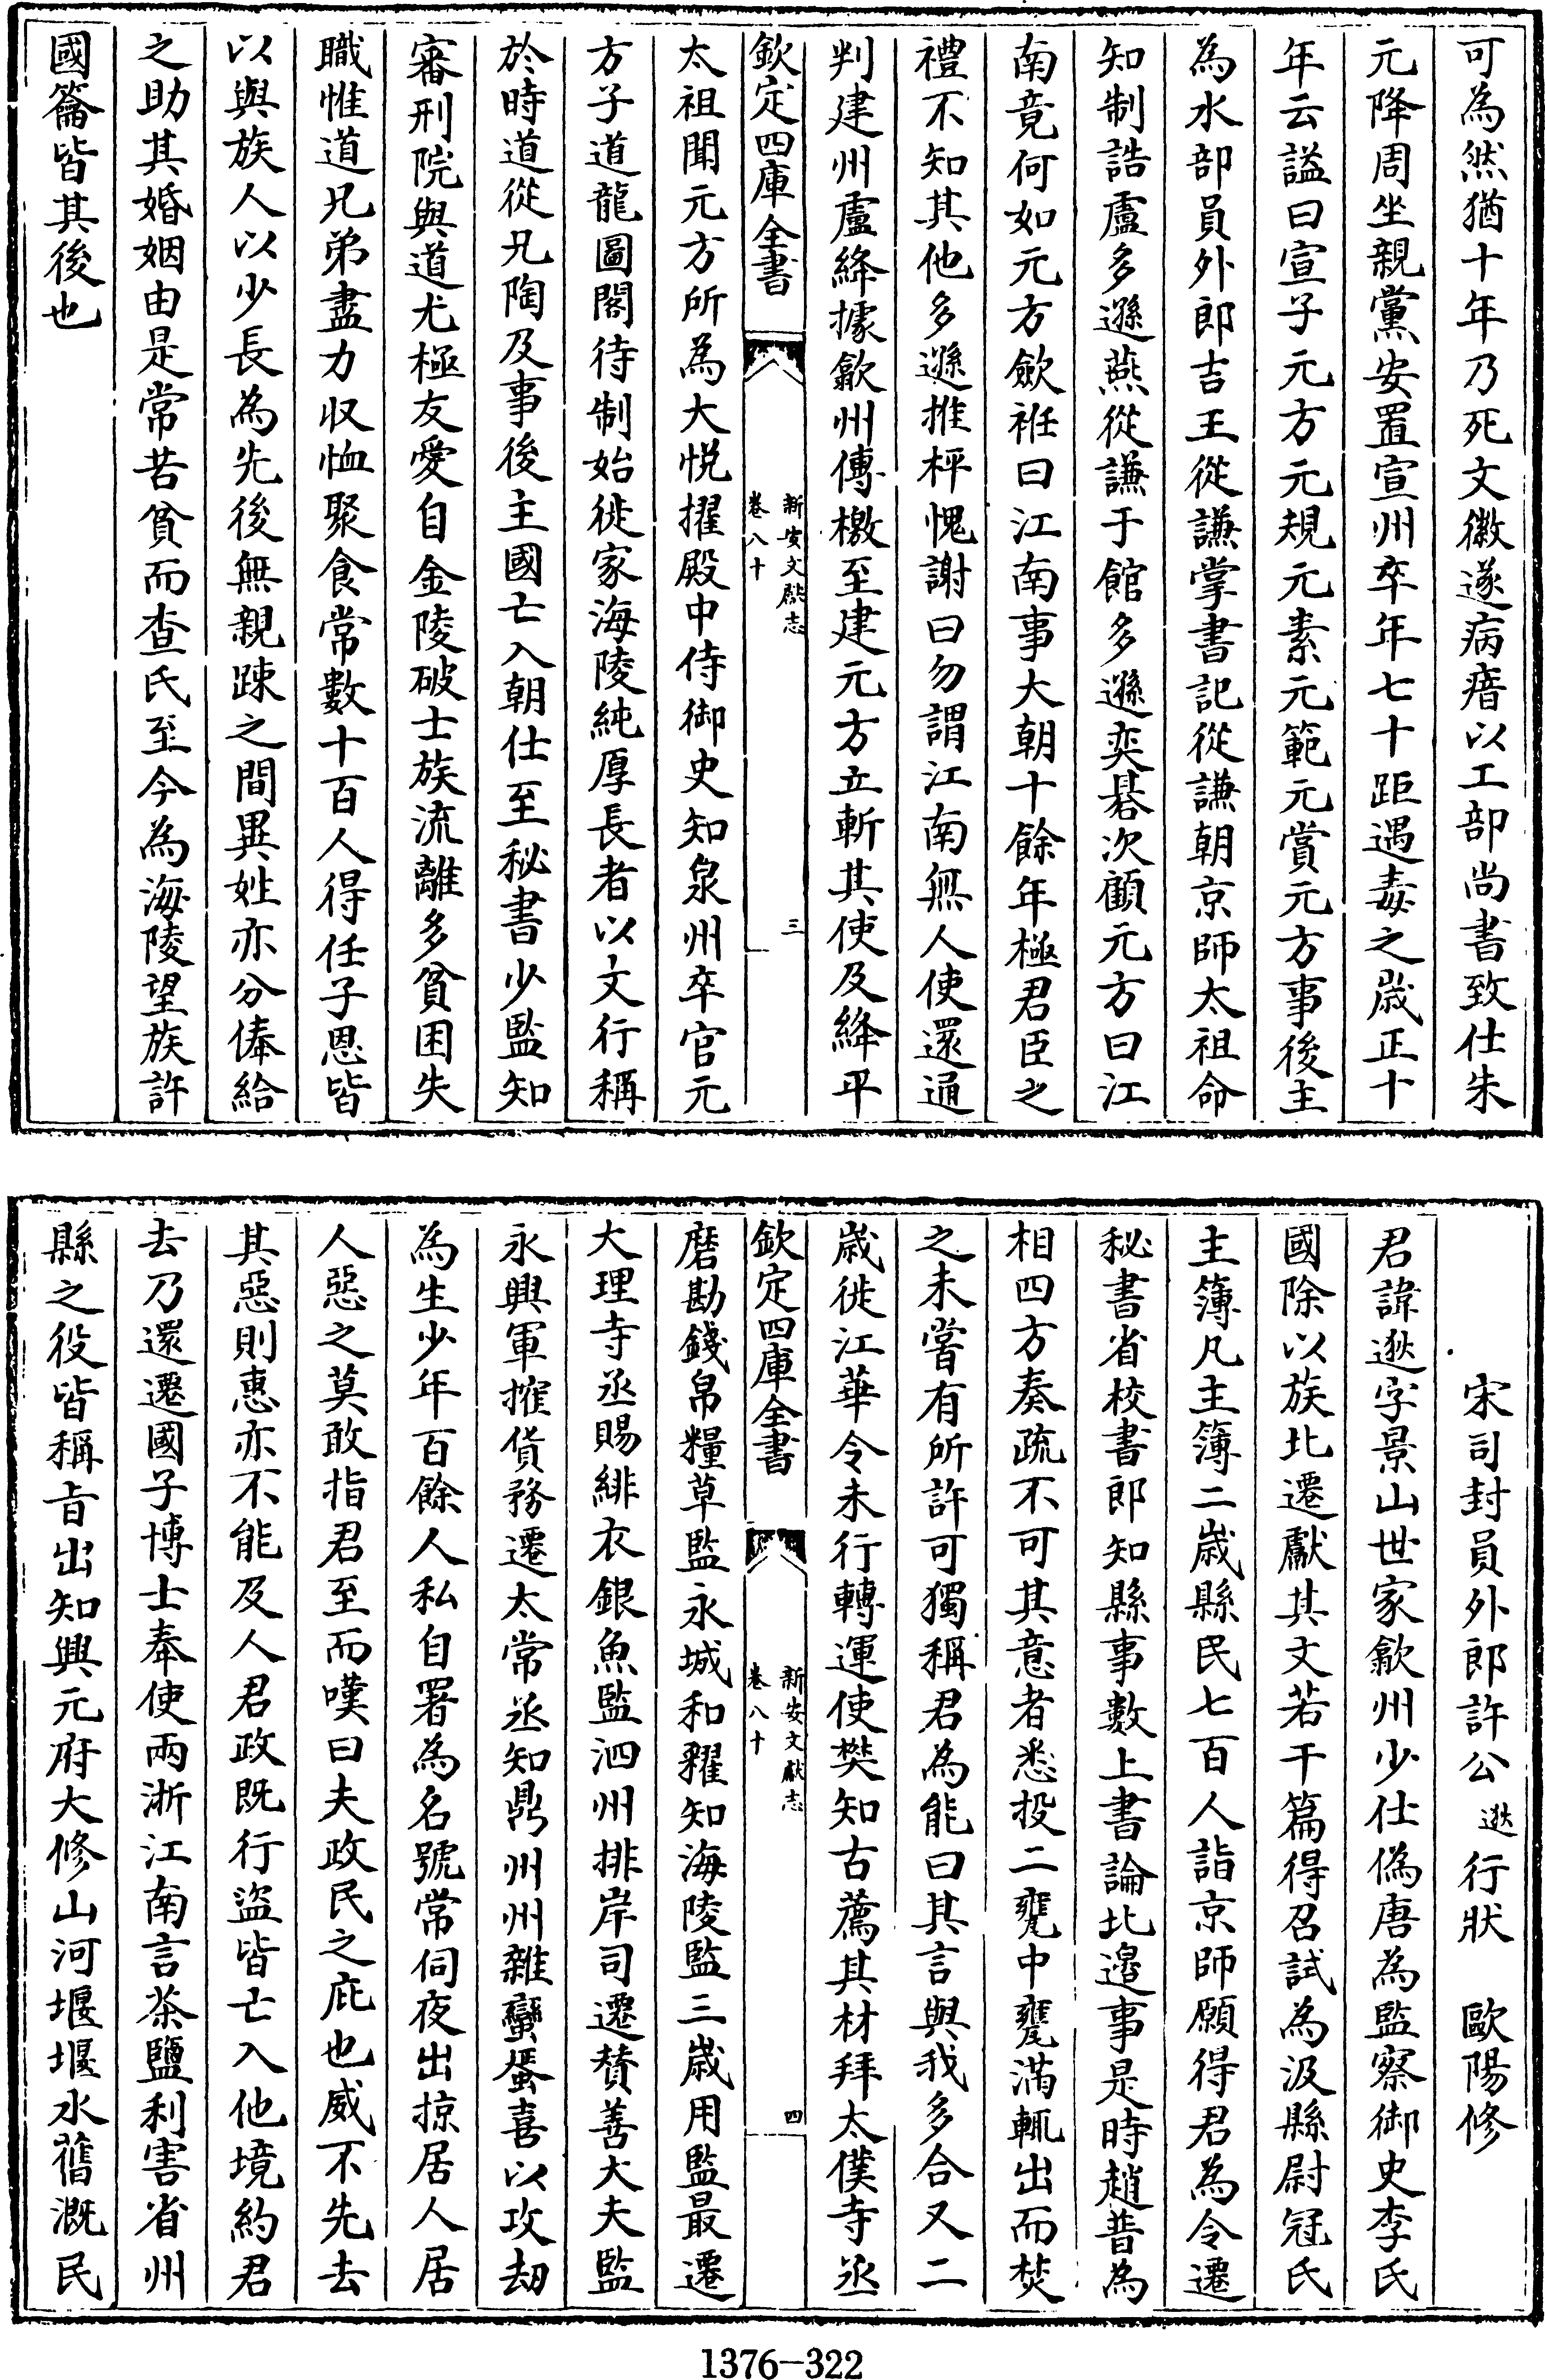 可為然猶十年乃死文徽遂病瘖以工部尚書致仕朱
元降周坐親黨安置宣州卒年七十距遇毒之歲正十
年云諡曰宣子元方元規元素元範元賞元方事後主
為水部員外郎吉王從謙掌書記從謙朝京師太祖命
知制誥盧多遜燕從謙于館多遜奕碁次顧元方曰江
南竟何如元方歛袵曰江南事大朝十餘年極君臣之
禮不知其他多遜推枰愧謝曰勿謂江南無人使還通
判建州盧絳據歙州傳檄至建元方立斬其使及絳平
欽定四庫全書
新安文獻志
卷八十
三
太祖聞元方所為大悅擢殿中侍御史知泉州卒官元
方子道龍圖閣待制始徙家海陵純厚長者以文行稱
於時道從兄陶及事後主國亡入朝仕至秘書少監知
審刑院與道尤極友愛自金陵破士族流離多貧困失
職惟道兄弟盡力収恤聚食常數十百人得任子恩皆
以與族人以少長為先後無親踈之間異姓亦分俸給
之助其婚姻由是常苦貧而查氏至今為海陵望族許
國籥皆其後也
宋司封員外郎許公逖行狀　歐陽修
君諱逖字景山世家歙州少仕偽唐為監察御史李氏
國除以族北遷獻其文若干篇得召試為汲縣尉冠氏
主簿凡主簿二歲縣民七百人詣京師願得君為令遷
秘書省校書郎知縣事數上書論北邉事是時趙普為
相四方奏疏不可其意者悉投二甕中甕滿輒出而焚
之未嘗有所許可獨稱君為能曰其言與我多合又二
歲徙江華令未行轉運使樊知古薦其材拜太僕寺丞
欽定四庫全書
新安文獻志
卷八十
四
磨勘錢帛糧草監永城和糴知海陵監三歲用監最遷
大理寺丞賜緋衣銀魚監泗州排岸司遷贊善大夫監
永興軍搉貨務遷太常丞知鼎州州雜蠻蜑喜以攻劫
為生少年百餘人私自署為名號常伺夜出掠居人居
人惡之莫敢指君至而嘆曰夫政民之庇也威不先去
其惡則惠亦不能及人君政既行盜皆亡入他境約君
去乃還遷國子博士奉使兩浙江南言茶鹽利害省州
縣之役皆稱旨出知興元府大修山河堰堰水舊溉民
1376-322